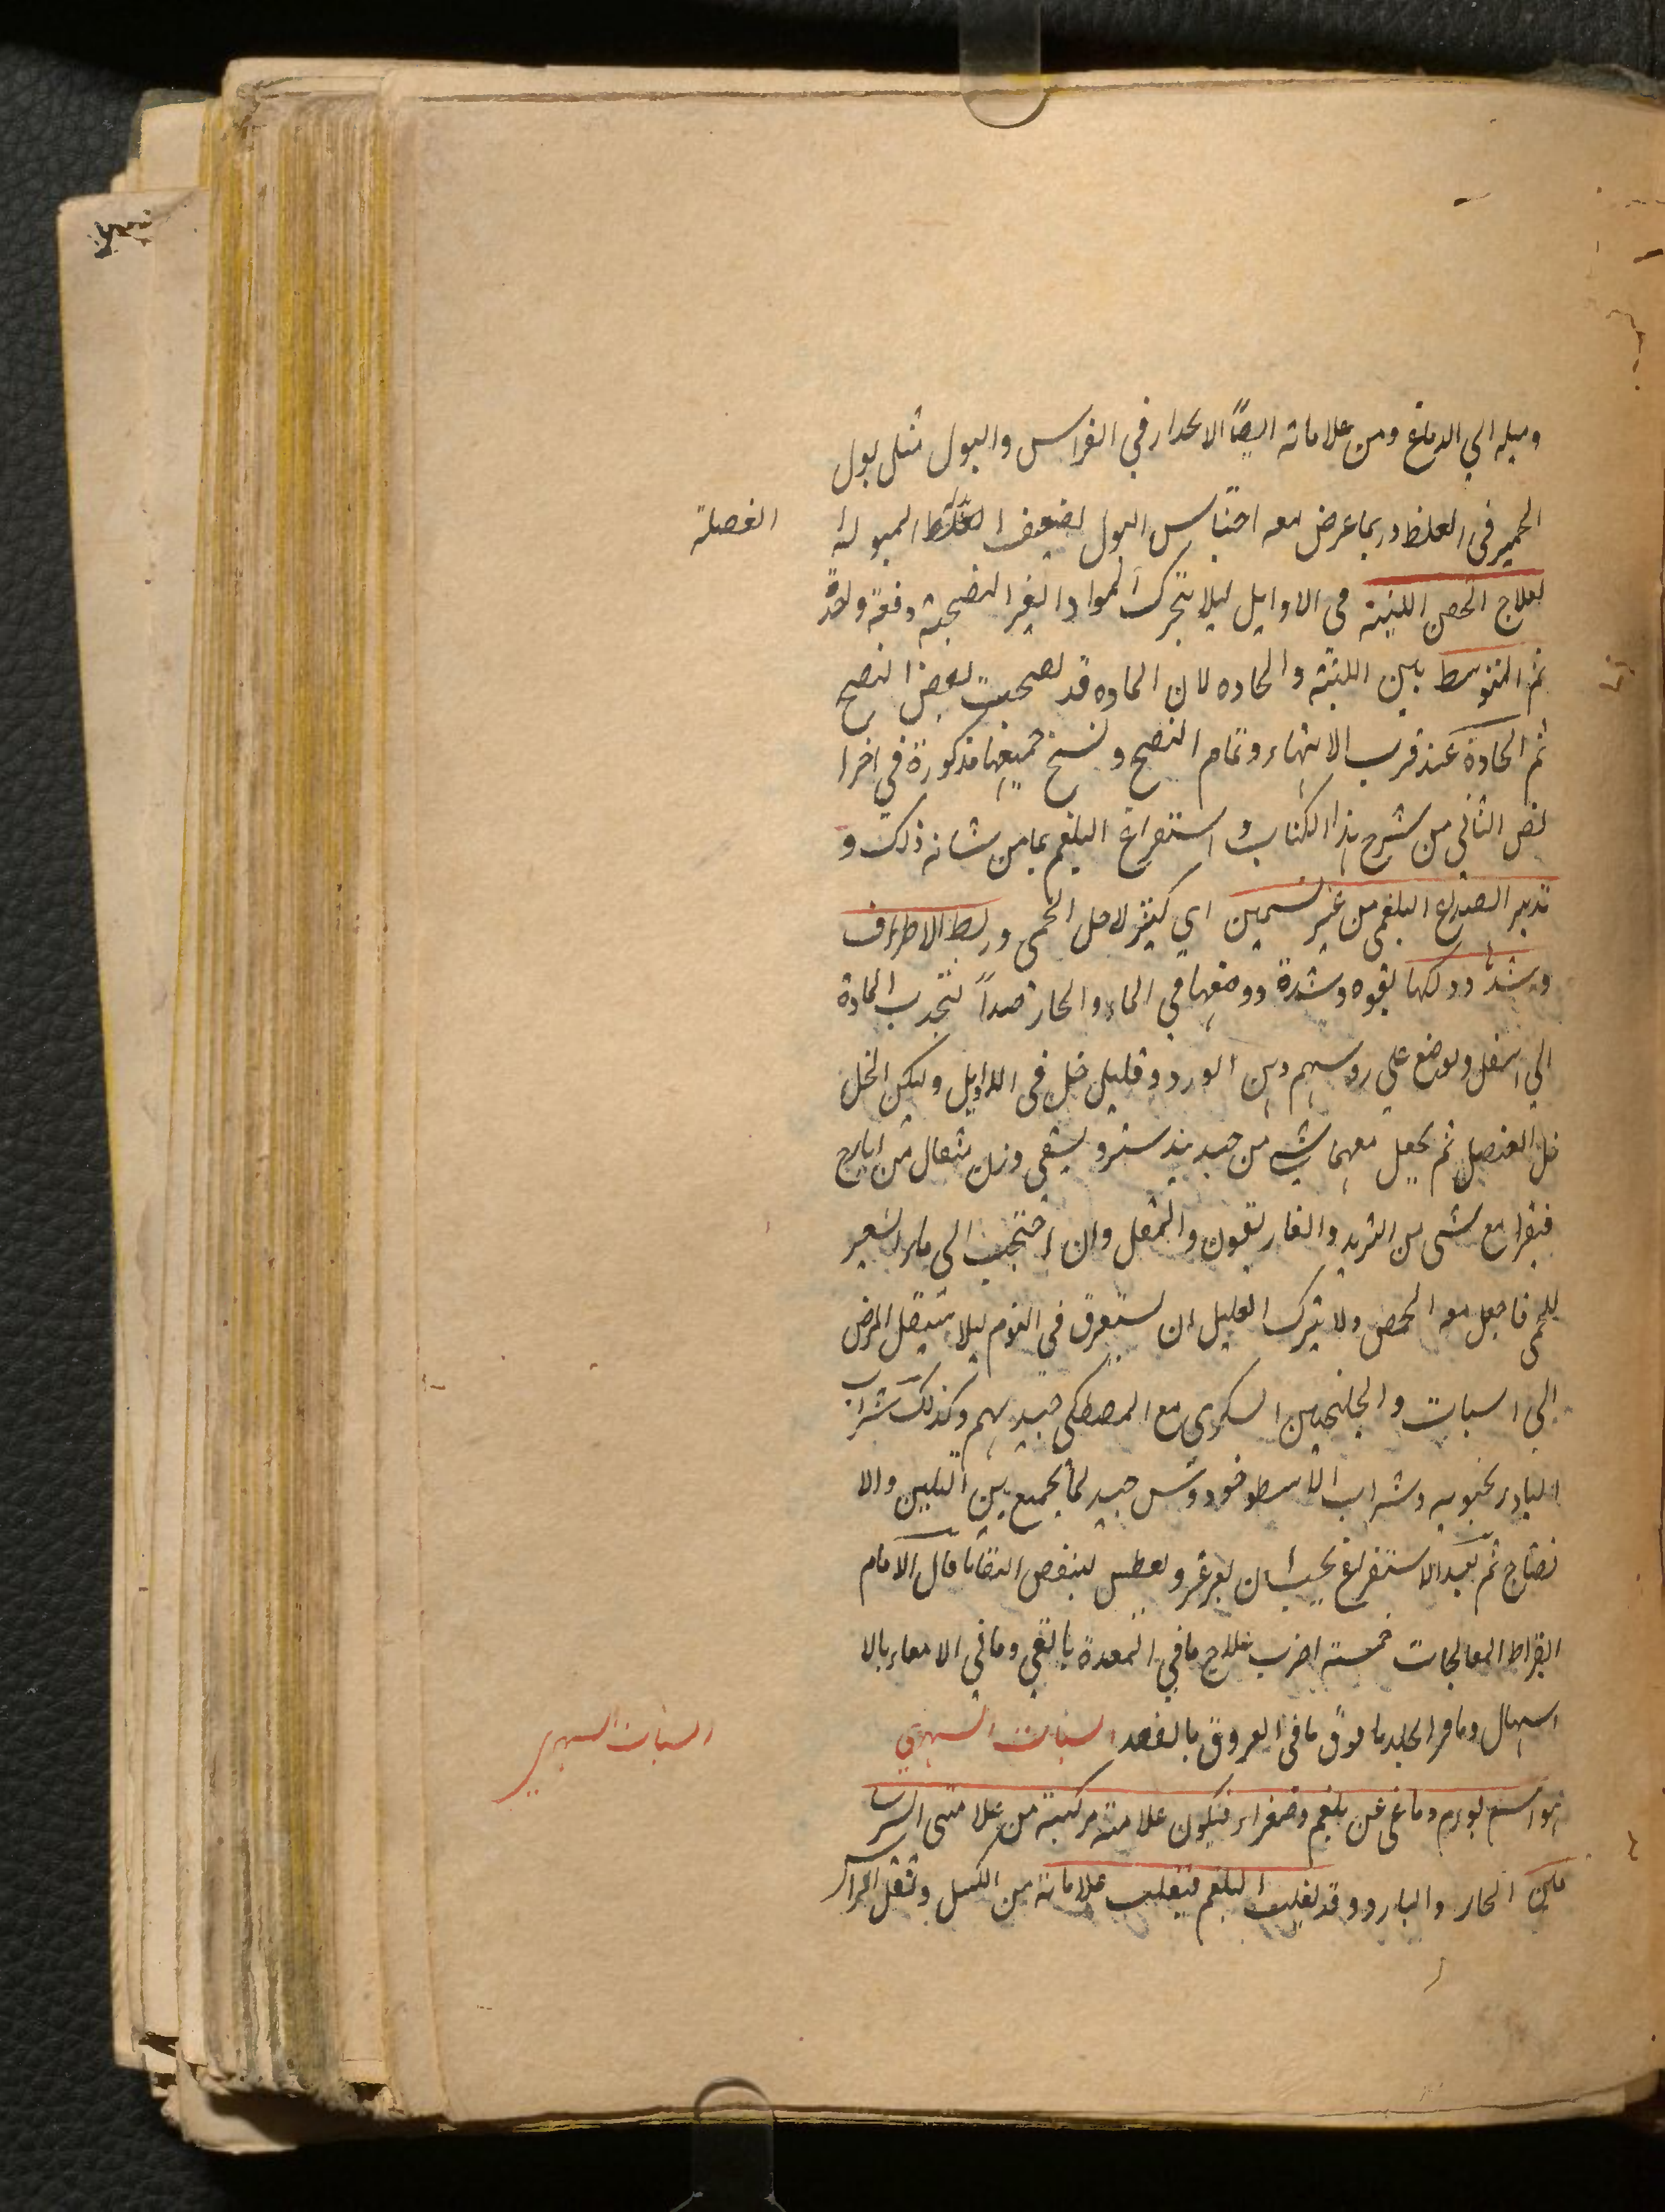 وميله الي الدماغ ومن علاماته ايضاً الانحدار في الفراس والبول مثل بول
الحمير في الغلظ وربما عرض معه احتباس البول لضعف العضلة المبولة
العضلة
لعلاج الحقن اللينة في الاوايل ليلا يتحرك المواد الغير النضيجة دفعة واحدة
ثم المتوسط بين اللينة والحاده لان الماده قد نضجت بعض النضج
ثم الحادة عند قرب الانتهاء وتمام النضج ونسخ جميعها مذكورة في اخر ا
لفن الثاني من شرح هذا الكتاب و استفراغ البلغم بما من شانه ذلك و
تدبير الصداع البلغمي من غير تسخين اي كثير لاجل الحمى وربط الاطراف
وشدها ودلكها بقوه وشدة ووضعها في الماء والحار جداً لتجذب المادة
الي اسفل ويوضع علي روسهم دهن الورد وقليل خل في الاوايل وليكن الخل
خل العنصل ثم يجعل معهما شي من جند بيدستر ويسقى وزن مثقال من ايارج
فيقرا مع شى من التربد والغاريقون والمقل وان احتجت الى ماء الشعير
للحمى فاجعل معه الحمص ولا يترك العليل ان يستغرق في النوم ليلا ينتقل المرض
الي السبات والجلنجبين السكري مع المصطكي جيد لهم وكذلك شراب
البادرنجبويه وشراب الاسطوخودوس جيد لما يجمع بين التليين والا
نضاج ثم بعد الاستفراغ يجب ان يغرغر ويعطس لينفض البقايا قال الامام
ابقراط المعالجات خمسة اضرب علاج ما في المعدة بالقي وما في الامعاء بالا
اسهال وما في الجلد بالعرق ما في العروق بالفصد السبات السهري
السبات السهري
هو اسم لورم دماغي عن بلغم وصفراء فتكون علامته مركبة من علامتى السرسا
مين الحار والبارد وقد يغلب البلغم فتغلب علاماته من الكسل وثقل الراس